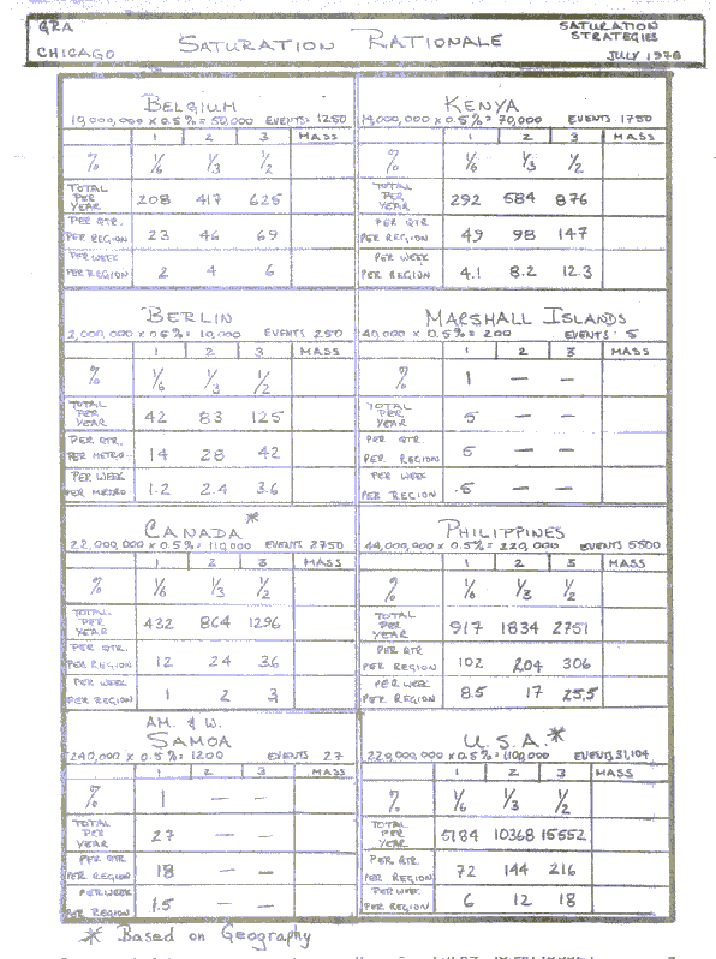 GRA
CHICAGO
SATURATION RATIONALE
SATURATION
STRATEGIES
JULY 1978
BELGIUM
10,000,000 x 0.5% = 50,000 EVENTS 1250
1 2 3 MASS
% 1/6 1/3 1/2
TOTAL PER YEAR 208 417 625
PER QTR. PER REGION 23 46 69
PER WEEK PER REGION 2 4 6
KENYA
14,000,000 x 0.5% = 70,000 EVENTS 1750
1 2 3 MASS
% 1/6 1/3 1/2
TOTAL PER YEAR 292 584 876
PER QTR PER REGION 49 98 147
PER WEEK PER REGION 4.1 8.2 12.3
BERLIN
2,000,000 x 0.5% = 10,000 EVENTS 250
1 2 3 MASS
% 1/6 1/3 1/2
TOTAL PER YEAR 42 83 125
PER QTR. PER METRO 14 28 42
PER WEEK PER METRO 1.2 2.4 3.6
MARSHALL ISLANDS
40,000 x 0.5% = 200 EVENTS 5
1 2 3 MASS
% 1 — —
TOTAL PER YEAR 5 — —
PER QTR PER REGION 5 — —
PER WEEK PER REGION .5 — —
CANADA *
22,000,000 x 0.5% = 110,000 EVENTS 2750
1 2 3 MASS
% 1/6 1/3 1/2
TOTAL PER YEAR 432 864 1296
PER QTR. PER REGION 12 24 36
PER WEEK PER REGION 1 2 3
PHILIPPINES
44,000,000 x 0.5% = 220,000 EVENTS 5500
1 2 3 MASS
% 1/6 1/3 1/2
TOTAL PER YEAR 917 1834 2751
PER QTR PER REGION 102 204 306
PER WEEK PER REGION 8.5 17 25.5
AM. & W.
SAMOA
240,000 x 0.5% = 1200 EVENTS 27
1 2 3 MASS
% 1 — —
TOTAL PER YEAR 27 — —
PER QTR PER REGION 18 — —
PER WEEK PER REGION 1.5 — —
U.S.A. *
220,000,000 x 0.5% = 1,100,000 EVENTS 31,104
1 2 3 MASS
% 1/6 1/3 1/2
TOTAL PER YEAR 5184 10368 15552
PER QTR. PER REGION 72 144 216
PER WK. PER REGION 6 12 18
* Based on Geography